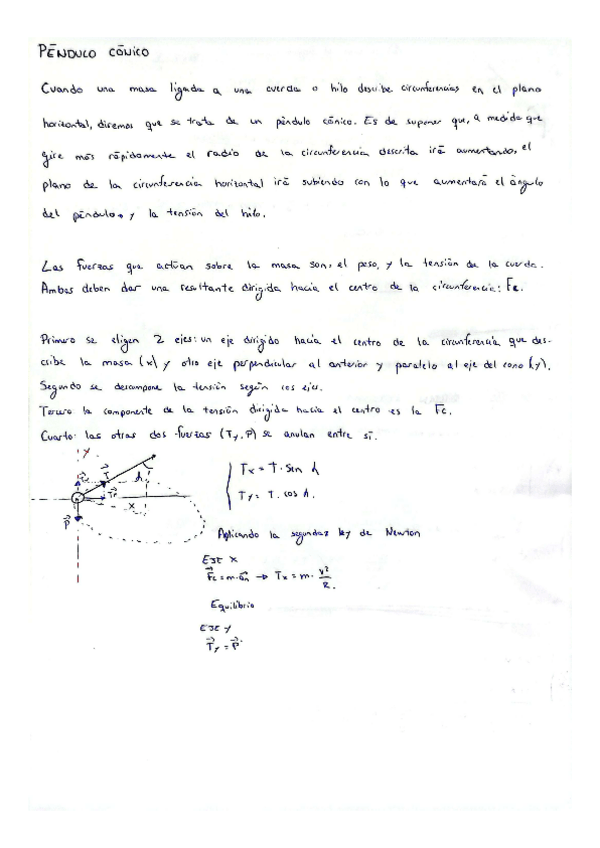 PÉNDULO CÓNICO
Cuando una masa ligada a una cuerda o hilo describe circunferencias en el plano
horizontal, diremos que se trata de un péndulo cónico. Es de suponer que, a medida que
gire más rápidamente el radio de la circunferencia descrita irá aumentando, el
plano de la circunferencia horizontal irá subiendo con lo que aumentará el ángulo
del péndulo, y la tensión del hilo.
Las fuerzas que actúan sobre la masa son, el peso, y la tensión de la cuerda.
Ambas deben dar una resultante dirigida hacia el centro de la circunferencia: Fc.
Primero se eligen 2 ejes: un eje dirigido hacia el centro de la circunferencia que des-
cribe la masa (x) y otro eje perpendicular al anterior y paralelo al eje del cono (y).
Segundo se descompone la tensión según los ejes.
Tercero la componente de la tensión dirigida hacia el centro es la Fc.
Cuarto: las otras dos fuerzas (Ty, P) se anulan entre sí.
y
T
x
P
Tx = T · sin
Ty = T · cos
Aplicando la segunda ley de Newton
EJE X
Fc = m · an → Tx = m · v²/R.
Equilibrio
EJE Y
Ty = P